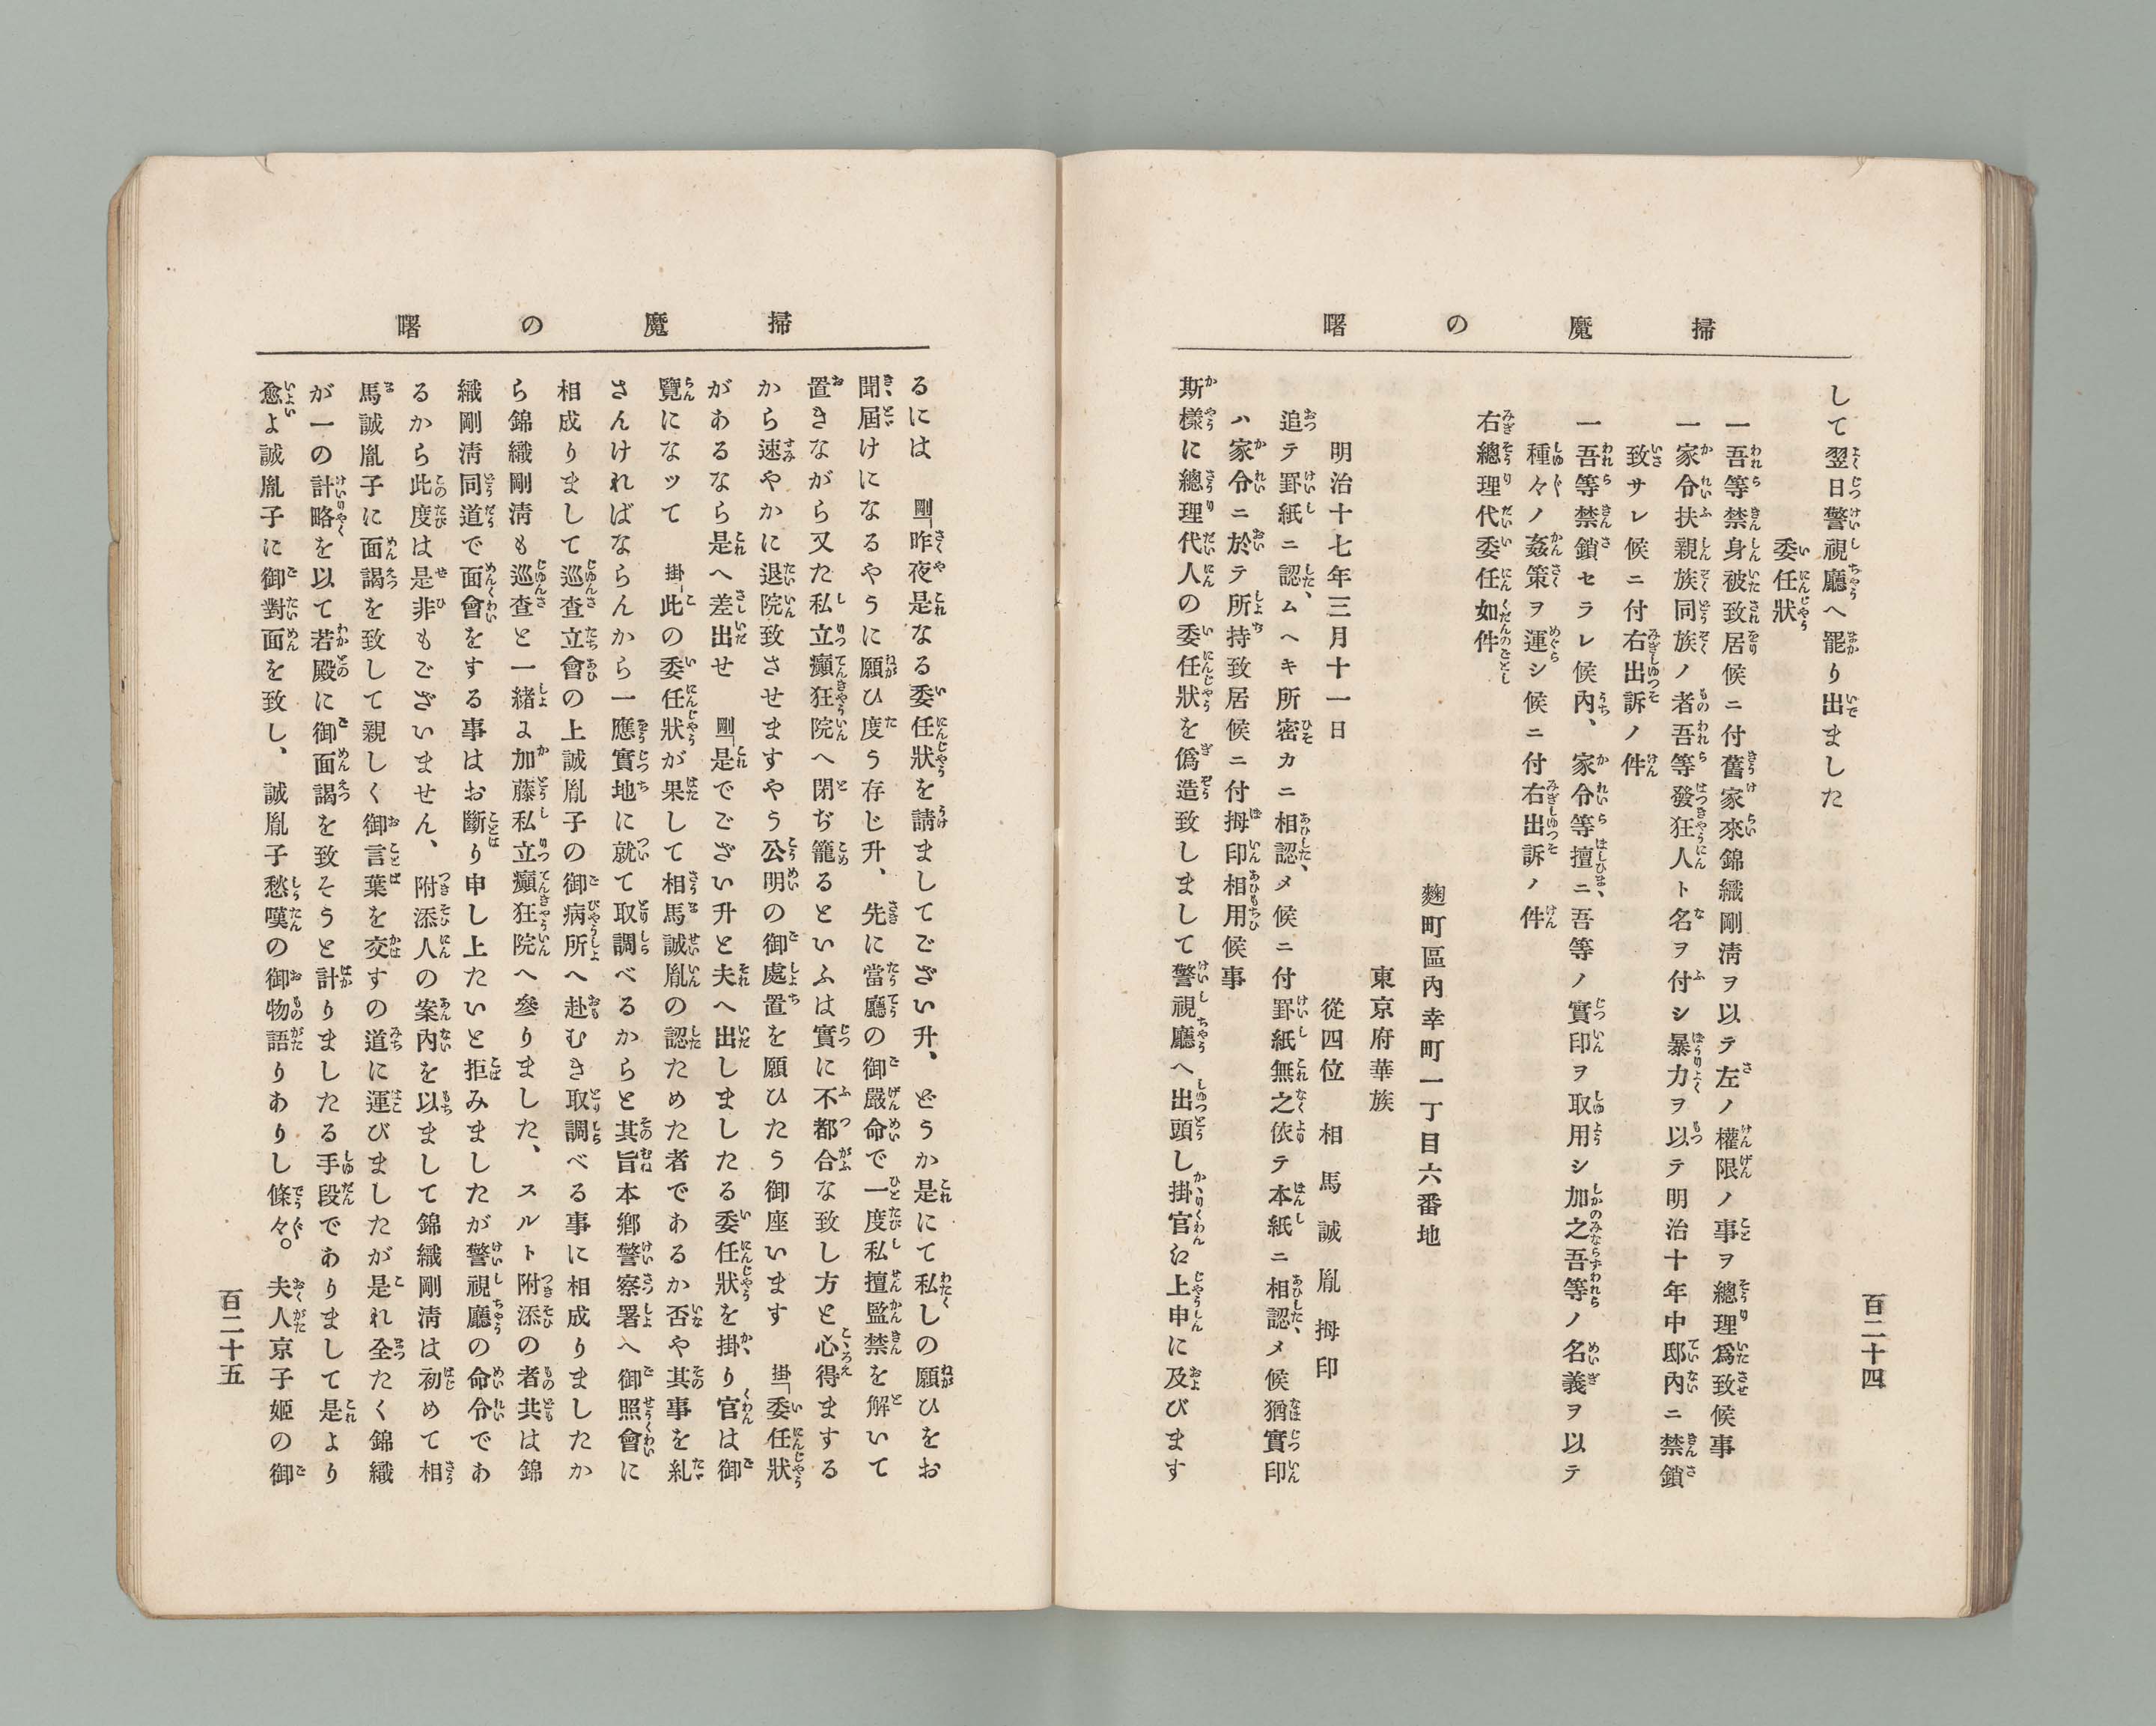 掃魔の曙
百二十四
して翌日警視廳へ罷り出ました
委任狀
一吾等禁身被致居候ニ付舊家來錦織剛淸ヲ以テ左ノ權限ノ事ヲ總理爲致候事
一家令扶親族同族ノ者吾等發狂人ト名ヲ付シ暴力ヲ以テ明治十年中邸內ニ禁鎖
致サレ候ニ付右出訴ノ件
一吾等禁鎖セラレ候內、家令等擅ニ、吾等ノ實印ヲ取用シ加之吾等ノ名義ヲ以テ
種々ノ姦策ヲ運シ候ニ付右出訴ノ件
右總理代委任如件
麴町區內幸町一丁目六番地
東京府華族
從四位 相馬誠胤 拇印
明治十七年三月十一日
追テ罫紙ニ認ムヘキ所密カニ相認メ候ニ付罫紙無之依テ本紙ニ相認メ候猶實印
ハ家令ニ於テ所持致居候ニ付拇印相用候事
斯樣に總理代人の委任狀を僞造致しまして警視廳へ出頭し掛官に上申に及びます
掃魔の曙
るには 剛「昨夜是なる委任狀を請ましてござい升、どうか是にて私しの願ひをお
聞屆けになるやうに願ひ度う存じ升、先に當廳の御嚴命で一度私擅監禁を解いて
置きながら又た私立癲狂院へ閉ぢ籠るといふは實に不都合な致し方と心得まする
から速やかに退院致させますやう公明の御處置を願ひたう御座います 掛「委任狀
があるなら是へ差出せ 剛「是でござい升と夫へ出しましたる委任狀を掛り官は御
覽になッて 掛「此の委任狀が果して相馬誠胤の認ためた者であるか否や其事を糺
さんければならんから一應實地に就て取調べるからと其旨本鄕警察署へ御照會に
相成りまして巡査立會の上誠胤子の御病所へ赴むき取調べる事に相成りましたか
ら錦織剛淸も巡査と一緖よ加藤私立癲狂院へ參りました、スルト附添の者共は錦
織剛淸同道で面會をする事はお斷り申し上たいと拒みましたが警視廳の命令であ
るから此度は是非もございません、附添人の案內を以まして錦織剛淸は初めて相
馬誠胤子に面謁を致して親しく御言葉を交すの道に運びましたが是れ全たく錦織
が一の計略を以て若殿に御面謁を致そうと計りましたる手段でありまして是より
愈よ誠胤子に御對面を致し、誠胤子愁嘆の御物語りありし條々。夫人京子姬の御
百二十五